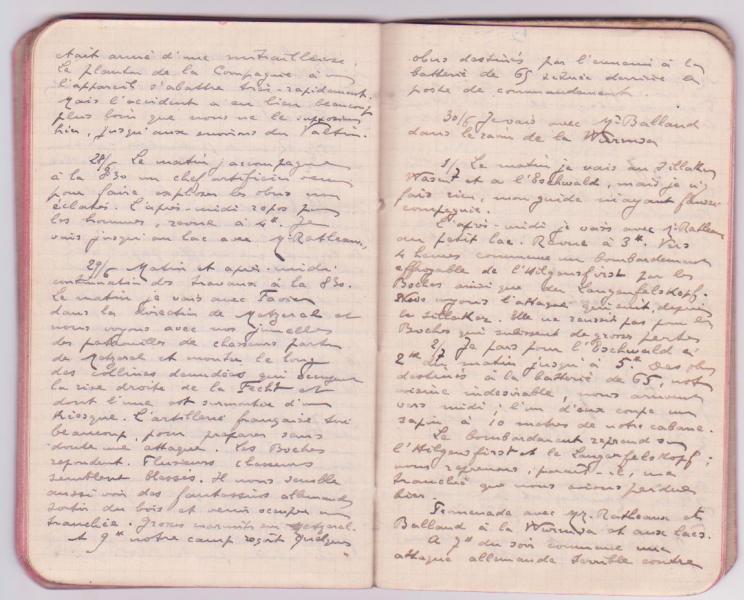 était armé d'une mitrailleuse.
Le planton de la Compagnie a vu
l'appareil s'abattre très rapidement.
Mais l'accident a eu lieu beaucoup
plus loin que nous ne le supposions
hier, jusqu'aux environs du
28/6 Le matin j'accompagne
à la 830 un chef artificier venu
pour faire exploser les obus non
éclatés. L'après-midi repos pour
les hommes, revue à 4h. Je
vais jusqu'au lac avec Mr Ratheaux.
29/6 Matin et après-midi:
continuation des travaux à la 830.
Le matin je vais avec Favier
dans la direction de Metzeral et
nous voyons avec nos jumelles
des patrouilles de chasseurs partir
de Metzeral et monter le long
des collines dénudées qui occupent
la rive droite de la Fecht et
dont l'une est surmontée d'un
kiosque. L'artillerie française tire
beaucoup, pour préparer sans
doute une attaque. Les Boches
répondent. Plusieurs chasseurs
semblent blessés. Il nous semble
aussi voir des fantassins allemands
sortir du bois et venir occuper une
tranchée. Grosses marmites sur Metzeral.
A 9h notre camp reçoit quelques
obus destinés par l'ennemi à la
batterie de 65 située derrière le
poste de commandement.
30/6 Je vais avec Mr Balland
dans le ravin de la Wurmsa
1/7 Le matin je vais au Sillaker
Wasen et à l'Eschwald, mais je n'y
fais rien, mon guide m'ayant faussé
compagnie.
L'après-midi je vais avec Mr Ratheaux
au petit lac. Revue à 3h. Vers
4 heures commence un bombardement
effroyable de l'Hilgenfirst par les
Boches ainsi que du Langenfelskopf.
Nous voyons l'attaque qui suit, depuis
le Sillaker. Elle ne réussit pas pour les
Boches qui subissent de grosses pertes
2/7 Je pars pour l'Eschwald de
2h du matin jusqu'à 5h. Des obus
destinés à la batterie de 65, notre
voisine indésirable, nous arrivent
vers midi; l'un d'eux coupe un
sapin à 10 mètres de notre cabane.
Le bombardement reprend sur
l'Hilgenfirst et le Langenfelskopf;
nous reprenons, paraît-il, une
tranchée que nous avions perdue
hier.
Promenade avec Mr. Ratheaux et
Balland à la Wurmsa et aux lacs.
A 9h du soir commence une
attaque allemande terrible contre